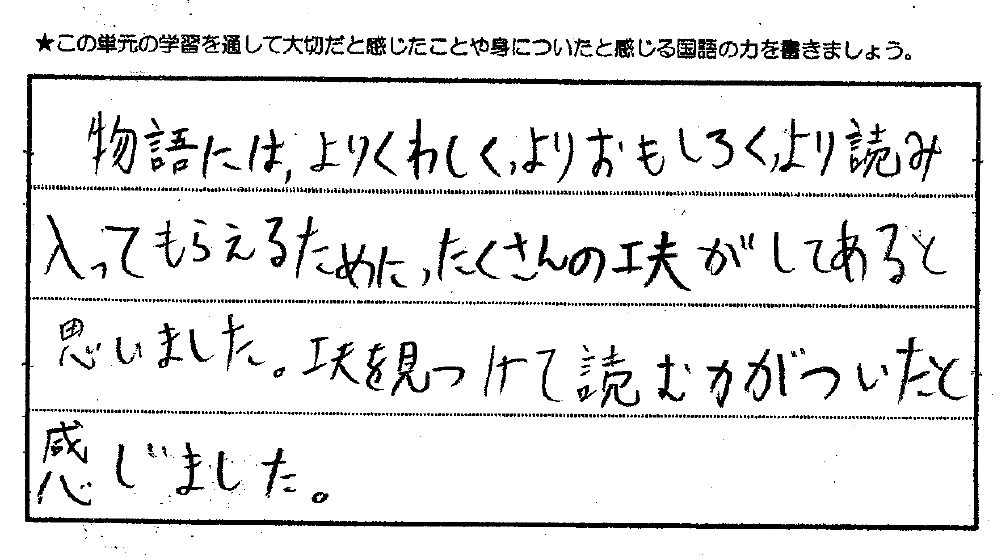 ★この単元の学習を通して大切だと感じたことや身についたと感じる国語の力を書きましょう。
物語には,よりくわしく,よりおもしろく,より読み
入ってもらえるために,たくさんの工夫がしてあると
思いました。工夫を見つけて読む力がついたと
感じました。